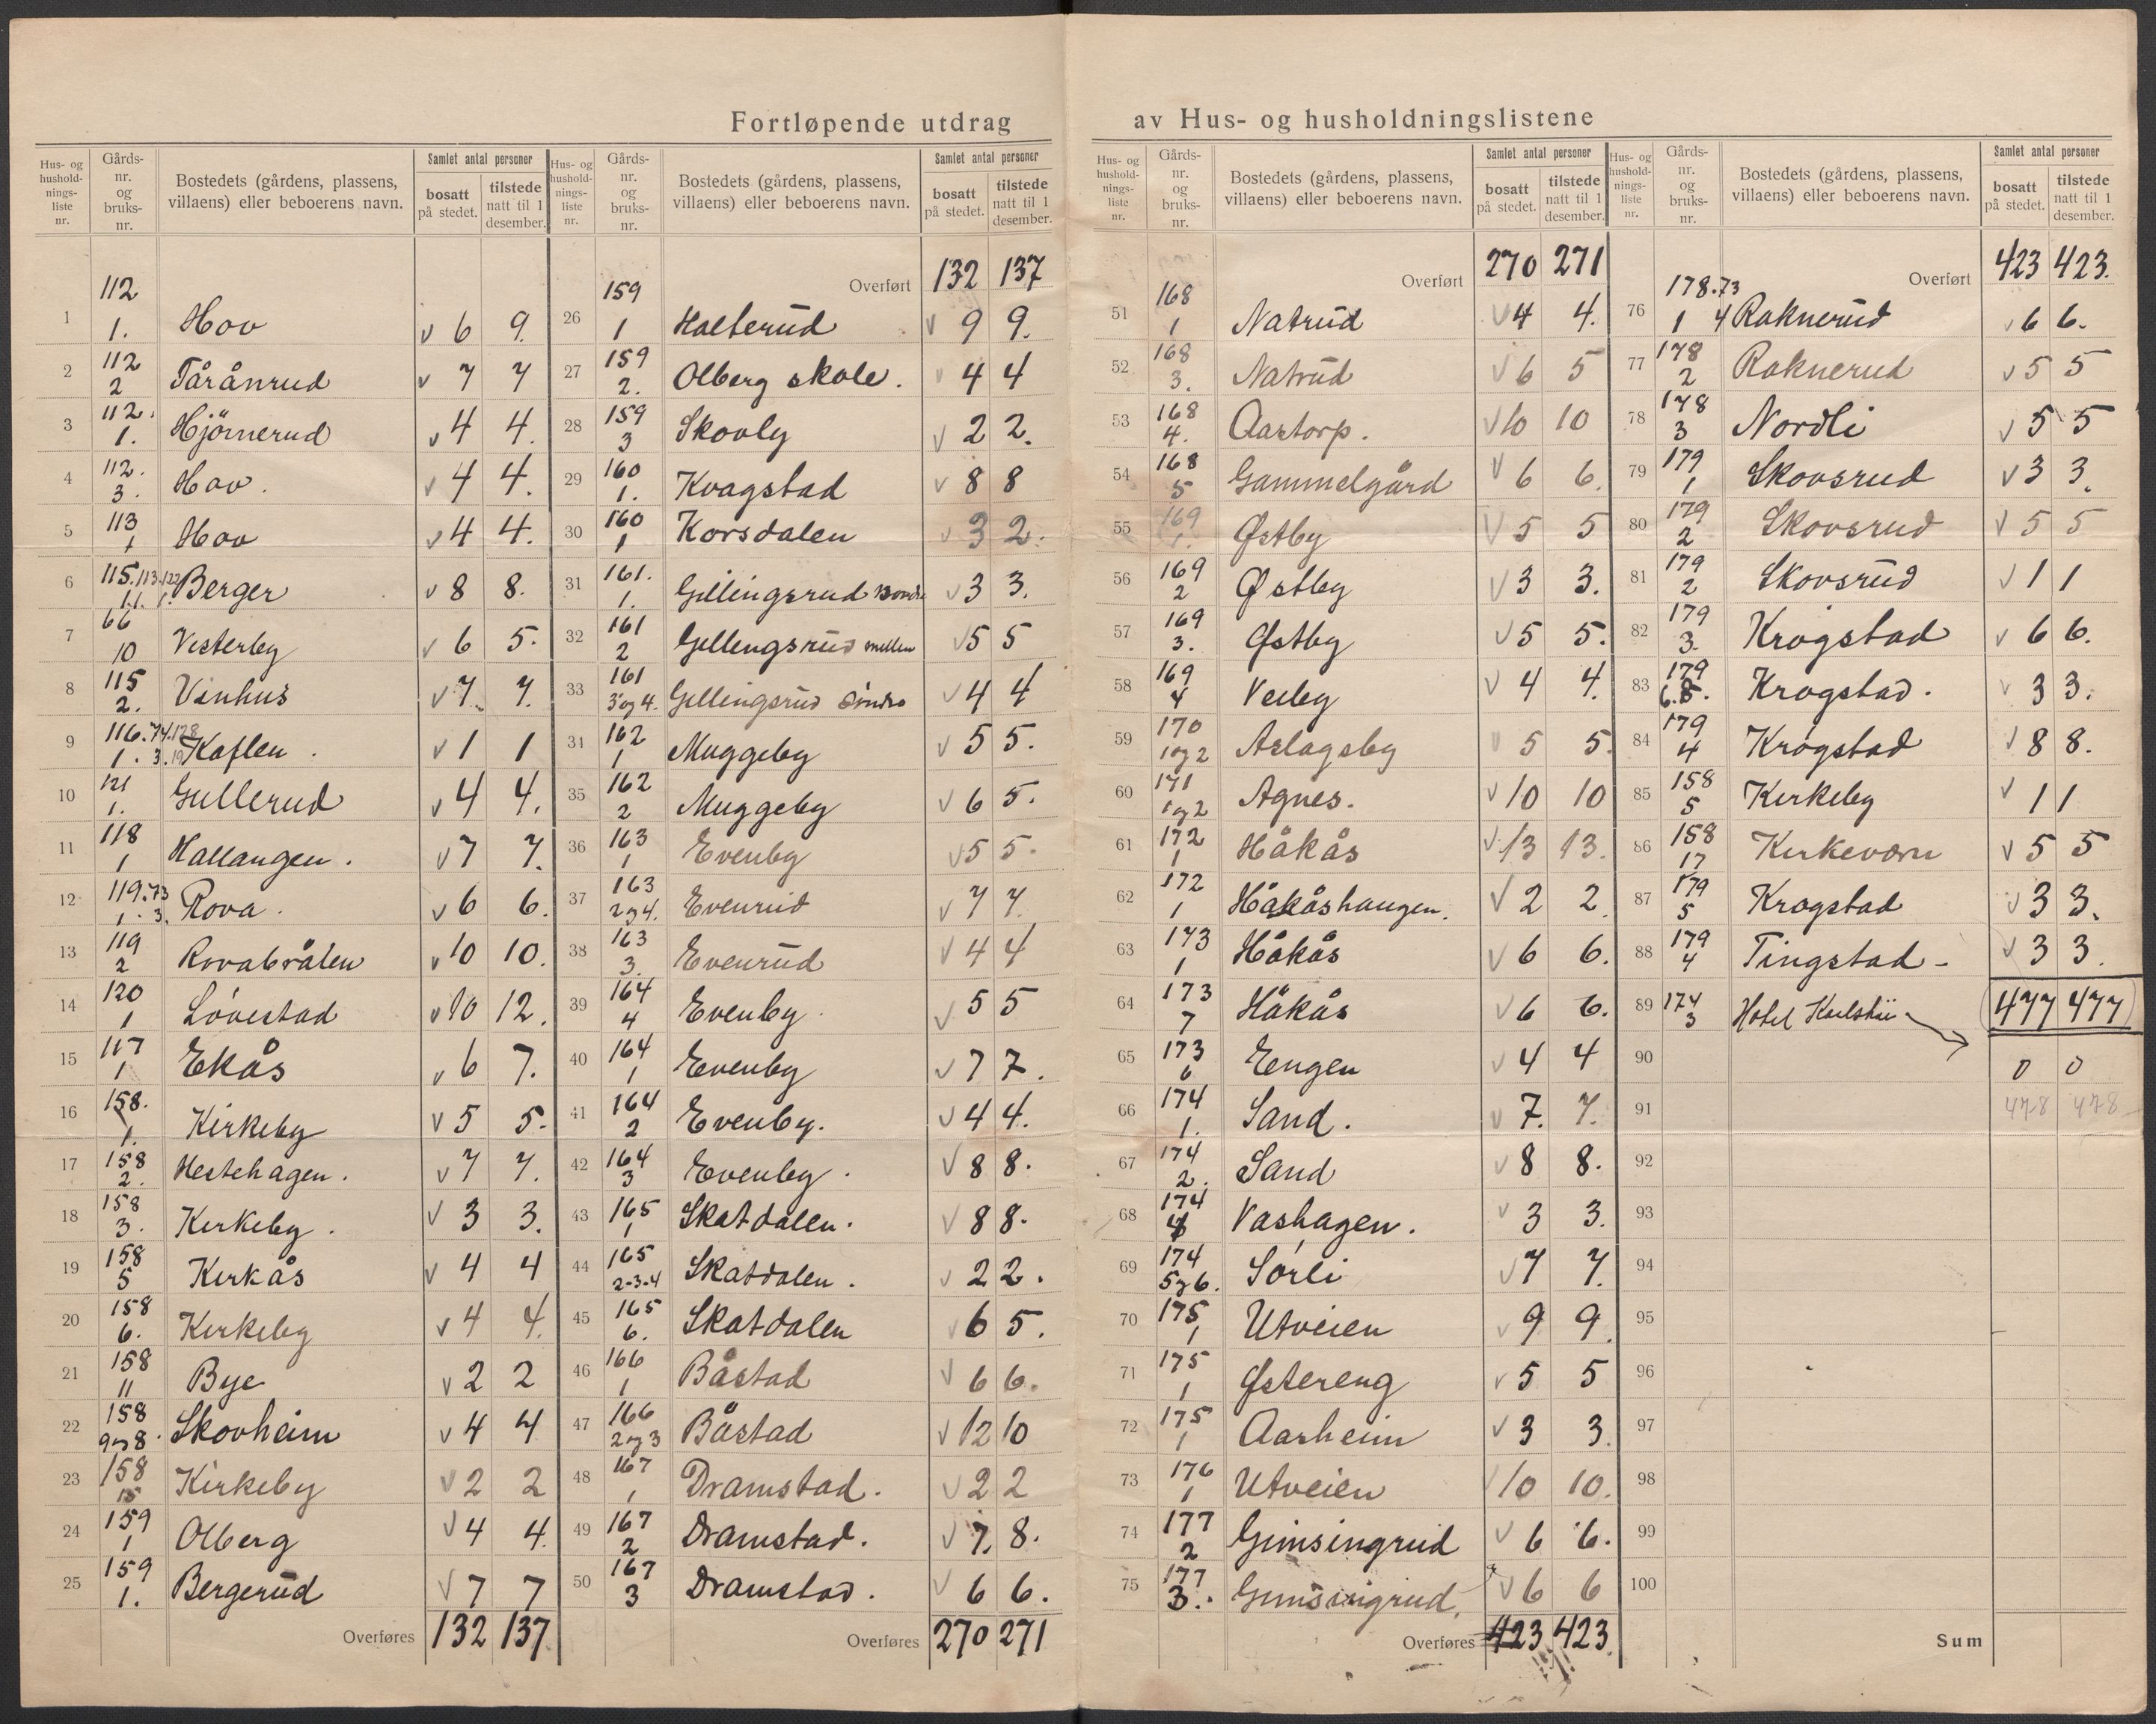 Fortløpende utdrag av Hus- og husholdningslistene
Hus- og hushold- nings- liste nr. | Gårds- nr. og bruks- nr. | Bostedets (gårdens, plassens, villaens) eller beboerens navn. | Samlet antal personer | bosatt på stedet. | tilstede natt til 1 desember.
1 | 112 1. | Hov | 6 | 9.
2 | 112 2 | Tårånrud | 7 | 7
3 | 112. 1. | Hjörnerud | 4 | 4.
4 | 112. 3. | Hov. | 4 | 4.
5 | 113 1 | Hov | 4 | 4.
6 | 115. 113. 122 1. 1. 1. | Berger | 8 | 8.
7 | 66 10 | Vesterby | 6 | 5.
8 | 115 2. | Vinhus | 7 | 7.
9 | 116. 74. 128 1. 3. 19 | Kaflen. | 1 | 1
10 | 121 1. | Gullerud | 4 | 4.
11 | 118 1 | Hallangen. | 7 | 7.
12 | 119. 73 1. 3. | Rova. | 6 | 6.
13 | 119 2 | Rovabråten | 10 | 10.
14 | 120 1 | Lövestad | 10 | 12.
15 | 117 1 | Ekås | 6 | 7.
16 | 158. 1. | Kirkeby | 5 | 5.
17 | 158 2. | Hestehagen. | 7 | 7.
18 | 158 3. | Kirkeby. | 3 | 3.
19 | 158 5 | Kirkås | 4 | 4
20 | 158 6. | Kirkeby | 4 | 4.
21 | 158 11 | Bye | 2 | 2
22 | 158 9 og 8. | Skovheim | 4 | 4
23 | 158 15 | Kirkeby | 2 | 2
24 | 159 1 | Olberg | 4 | 4.
25 | 159 1. | Bergerud | 7 | 7
Overføres 132 137
Hus- og hushold- nings- liste nr. | Gårds- nr. og bruks- nr. | Bostedets (gårdens, plassens, villaens) eller beboerens navn. | Samlet antal personer | bosatt på stedet. | tilstede natt til 1 desember.
Overført 132 137
26 | 159 1 | Halterud | 9 | 9.
27 | 159 2. | Olberg skole. | 4 | 4
28 | 159 3 | Skovly | 2 | 2.
29 | 160 1. | Kvagstad | 8 | 8
30 | 160 1 | Korsdalen | 3 | 2.
31 | 161. 1. | Gillingsrud | 3 | 3.
32 | 161 2 | Gillengsrud mellem | 5 | 5
33 | 161 3 og 4. | Gillingsrud Søndre | 4 | 4
34 | 162 1 | Muggeby | 5 | 5.
35 | 162 2 | Muggeby | 6 | 5.
36 | 163 1 | Evenby | 5 | 5.
37 | 163 2 og 4. | Evenrud | 7 | 7.
38 | 163 3. | Evenrud | 4 | 4
39 | 164 4 | Evenby. | 5 | 5
40 | 164 1 | Evenby | 7 | 7.
41 | 164 2 | Evenby. | 4 | 4.
42 | 164 3 | Evenby. | 8 | 8.
43 | 165 1 | Skatdalen. | 8 | 8.
44 | 165 2-3-4 | Skatdalen. | 2 | 2.
45 | 165 6. | Skatdalen | 6 | 5.
46 | 166 1 | Båstad | 6 | 6.
47 | 166 2 og 3 | Båstad | 12 | 10
48 | 167 1 | Dramstad. | 2 | 2
49 | 167 2 | Dramstad. | 7. | 8.
50 | 167 3 | Dramstad. | 6 | 6.
Overføres 270 271
Hus- og hushold- nings- liste nr. | Gårds- nr. og bruks- nr. | Bostedets (gårdens, plassens, villaens) eller beboerens navn. | Samlet antal personer | bosatt på stedet. | tilstede natt til 1 desember.
Overført 270 271
51 | 168 1 | Natrud | 4 | 4.
52 | 168 3. | Natrud | 6 | 5
53 | 168 4. | Aastorp. | 10 | 10
54 | 168 5 | Gammelgård | 6 | 6.
55 | 169 1. | Østby | 5 | 5
56 | 169 2 | Østby | 3 | 3.
57 | 169 3. | Østby | 5 | 5.
58 | 169 4 | Veiby | 4 | 4.
59 | 170 1 og 2 | Aslagsby | 5 | 5.
60 | 171 1 og 2 | Agnes. | 10 | 10
61 | 172 1 | Håkås | 13 | 13.
62 | 172 1 | Håkåshaugen. | 2 | 2.
63 | 173 1 | Håkås | 6 | 6.
64 | 173 7 | Håkås | 6 | 6.
65 | 173 6 | Eengen | 4 | 4
66 | 174 1. | Sand. | 7. | 7.
67 | 174 2. | Sand | 8 | 8.
68 | 174 4 | Vashagen. | 3 | 3.
69 | 174 5 og 6. | Sørli | 7 | 7.
70 | 175 1 | Utveien | 9 | 9.
71 | 175 1 | Østereng | 5 | 5
72 | 175 1 | Aarheim | 3 | 3.
73 | 176 1 | Utveien | 10 | 10.
74 | 177 2 | Gimsingrud | 6 | 6.
75 | 177 3. | Gimsingrud. | 6 | 6
Overføres 423 423
Hus- og hushold- nings- liste nr. | Gårds- nr. og bruks- nr. | Bostedets (gårdens, plassens, villaens) eller beboerens navn. | Samlet antal personer | bosatt på stedet. | tilstede natt til 1 desember.
Overført 423 423.
76 | 178. 73 1 4 | Raknerud | 6 | 6.
77 | 178 2 | Raknerud | 5 | 5
78 | 178 3 | Nordli | 5 | 5
79 | 179 1 | Skovsrud | 3 | 3.
80 | 179 2 | Skovsrud | 5 | 5
81 | 179 2 | Skovsrud | 1 | 1
82 | 179 3. | Krogstad | 6 | 6.
83 | 179 6.8. | Krogstad. | 3 | 3.
84 | 179 4 | Krogstad | 8 | 8.
85 | 158 5 | Kirkeby | 1 | 1
86 | 158 17 | Kirkevorn | 5 | 5
87 | 179 5 | Krogstad | 3 | 3.
88 | 179 4 | Tingstad - | 3 | 3.
89 | 174 3 | Hotel | 477 477
90 | 0 | 0
91 | 478 | 478
92
93
94
95
96
97
98
99
100
Sum